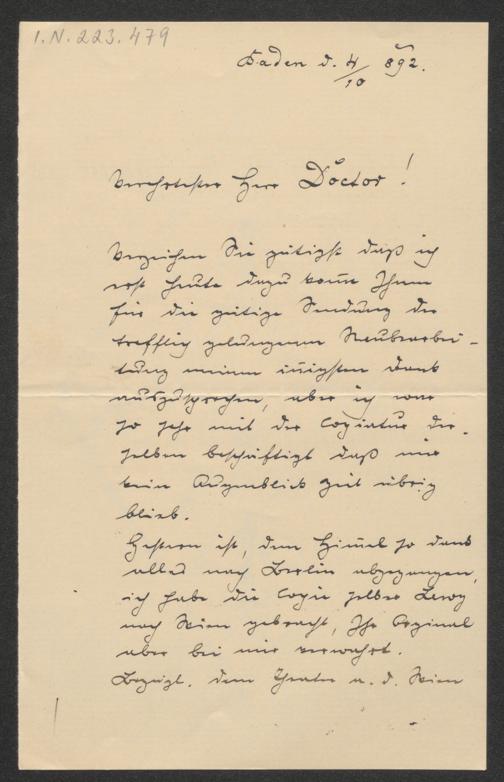 I.N. 223.479
Baden d. 4/10 892.
Verehrtester Herr Doctor!
Verzeihen Sie gütigst daß ich
erst heute dazu kom̅e Ihnen
für die gütige Sendung der
trefflich gelungenen Neubearbei-
tung meinen in̅igsten Dank
auszusprechen, aber ich war
so sehr mit der Copiatur der-
selben beschäftigt daß mir
kein Augenblick Zeit übrig
blieb.
Gestern ist, dem Him̅el so dank
alles nach Berlin abgegangen,
ich habe die Copie selber Lewy
nach Wien gebracht, Ihr Orginal
aber bei mir verwahrt.
Bezügl. dem Theater a. d. Wien